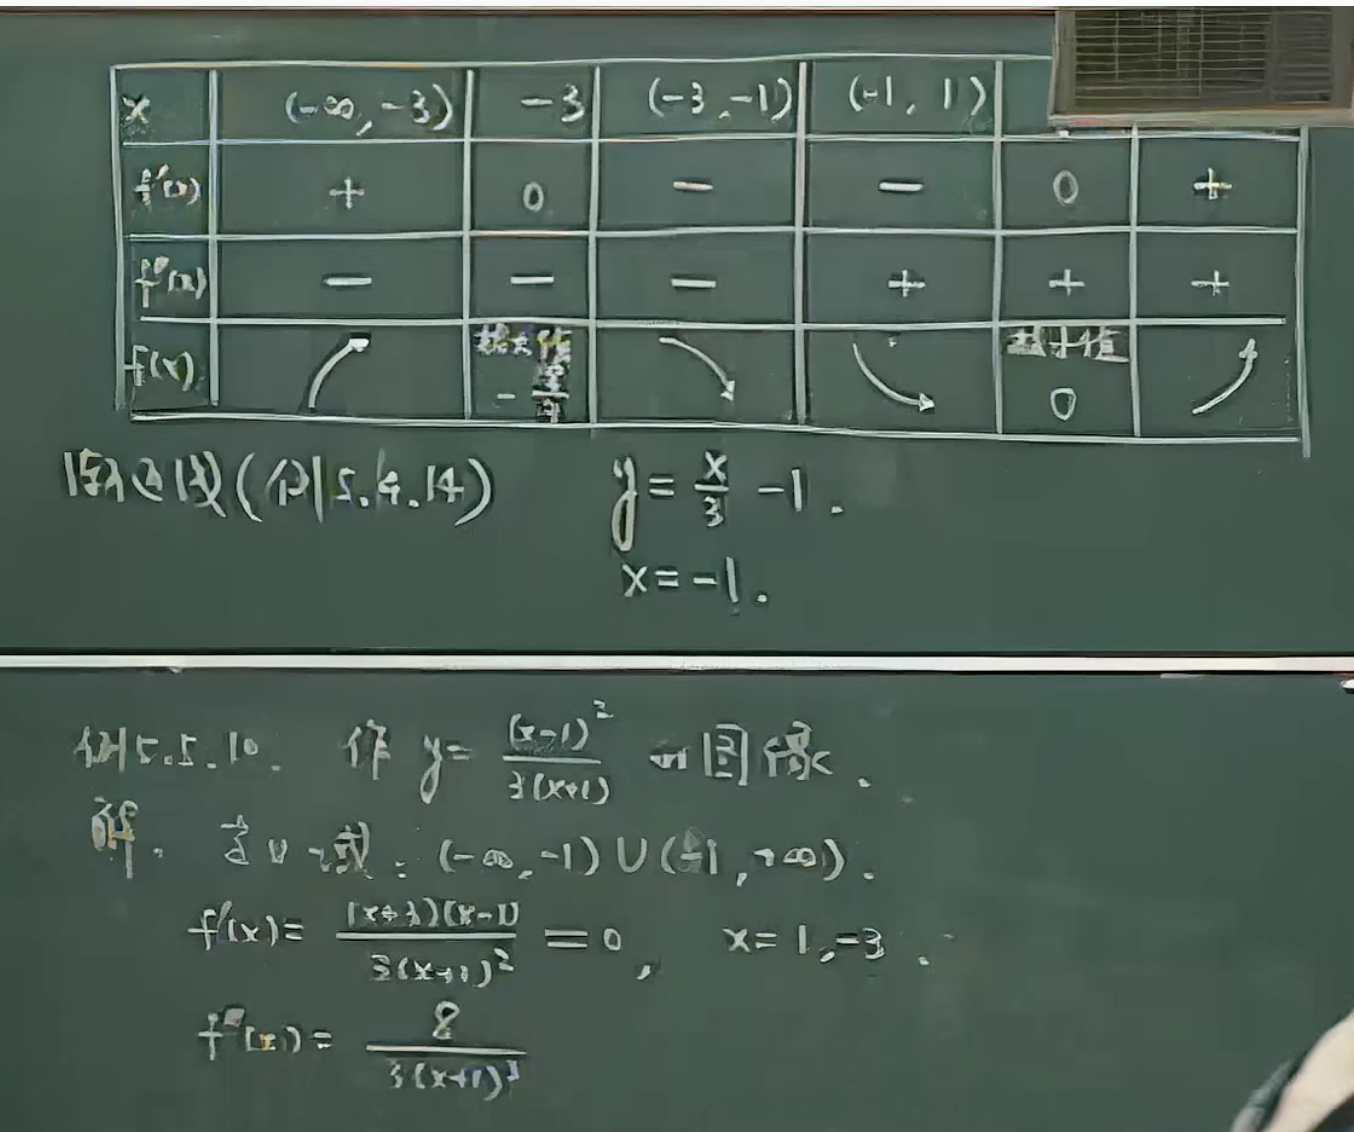 x (-∞,-3) -3 (-3,-1) (-1,1)
f'(x) + 0 - - 0 +
f''(x) - - - + + +
f(x) 极大值 极小值
- 0
渐近线(例5.4.14) y=x/3-1.
x=-1.
例5.5.10. 作 y=(x-1)²/3(x+1) 的图像.
解. 定义域:(-∞,-1)∪(-1,+∞).
f'(x)=(x+3)(x-1)/3(x+1)²=0, x=1,-3.
f''(x)=8/3(x+1)³